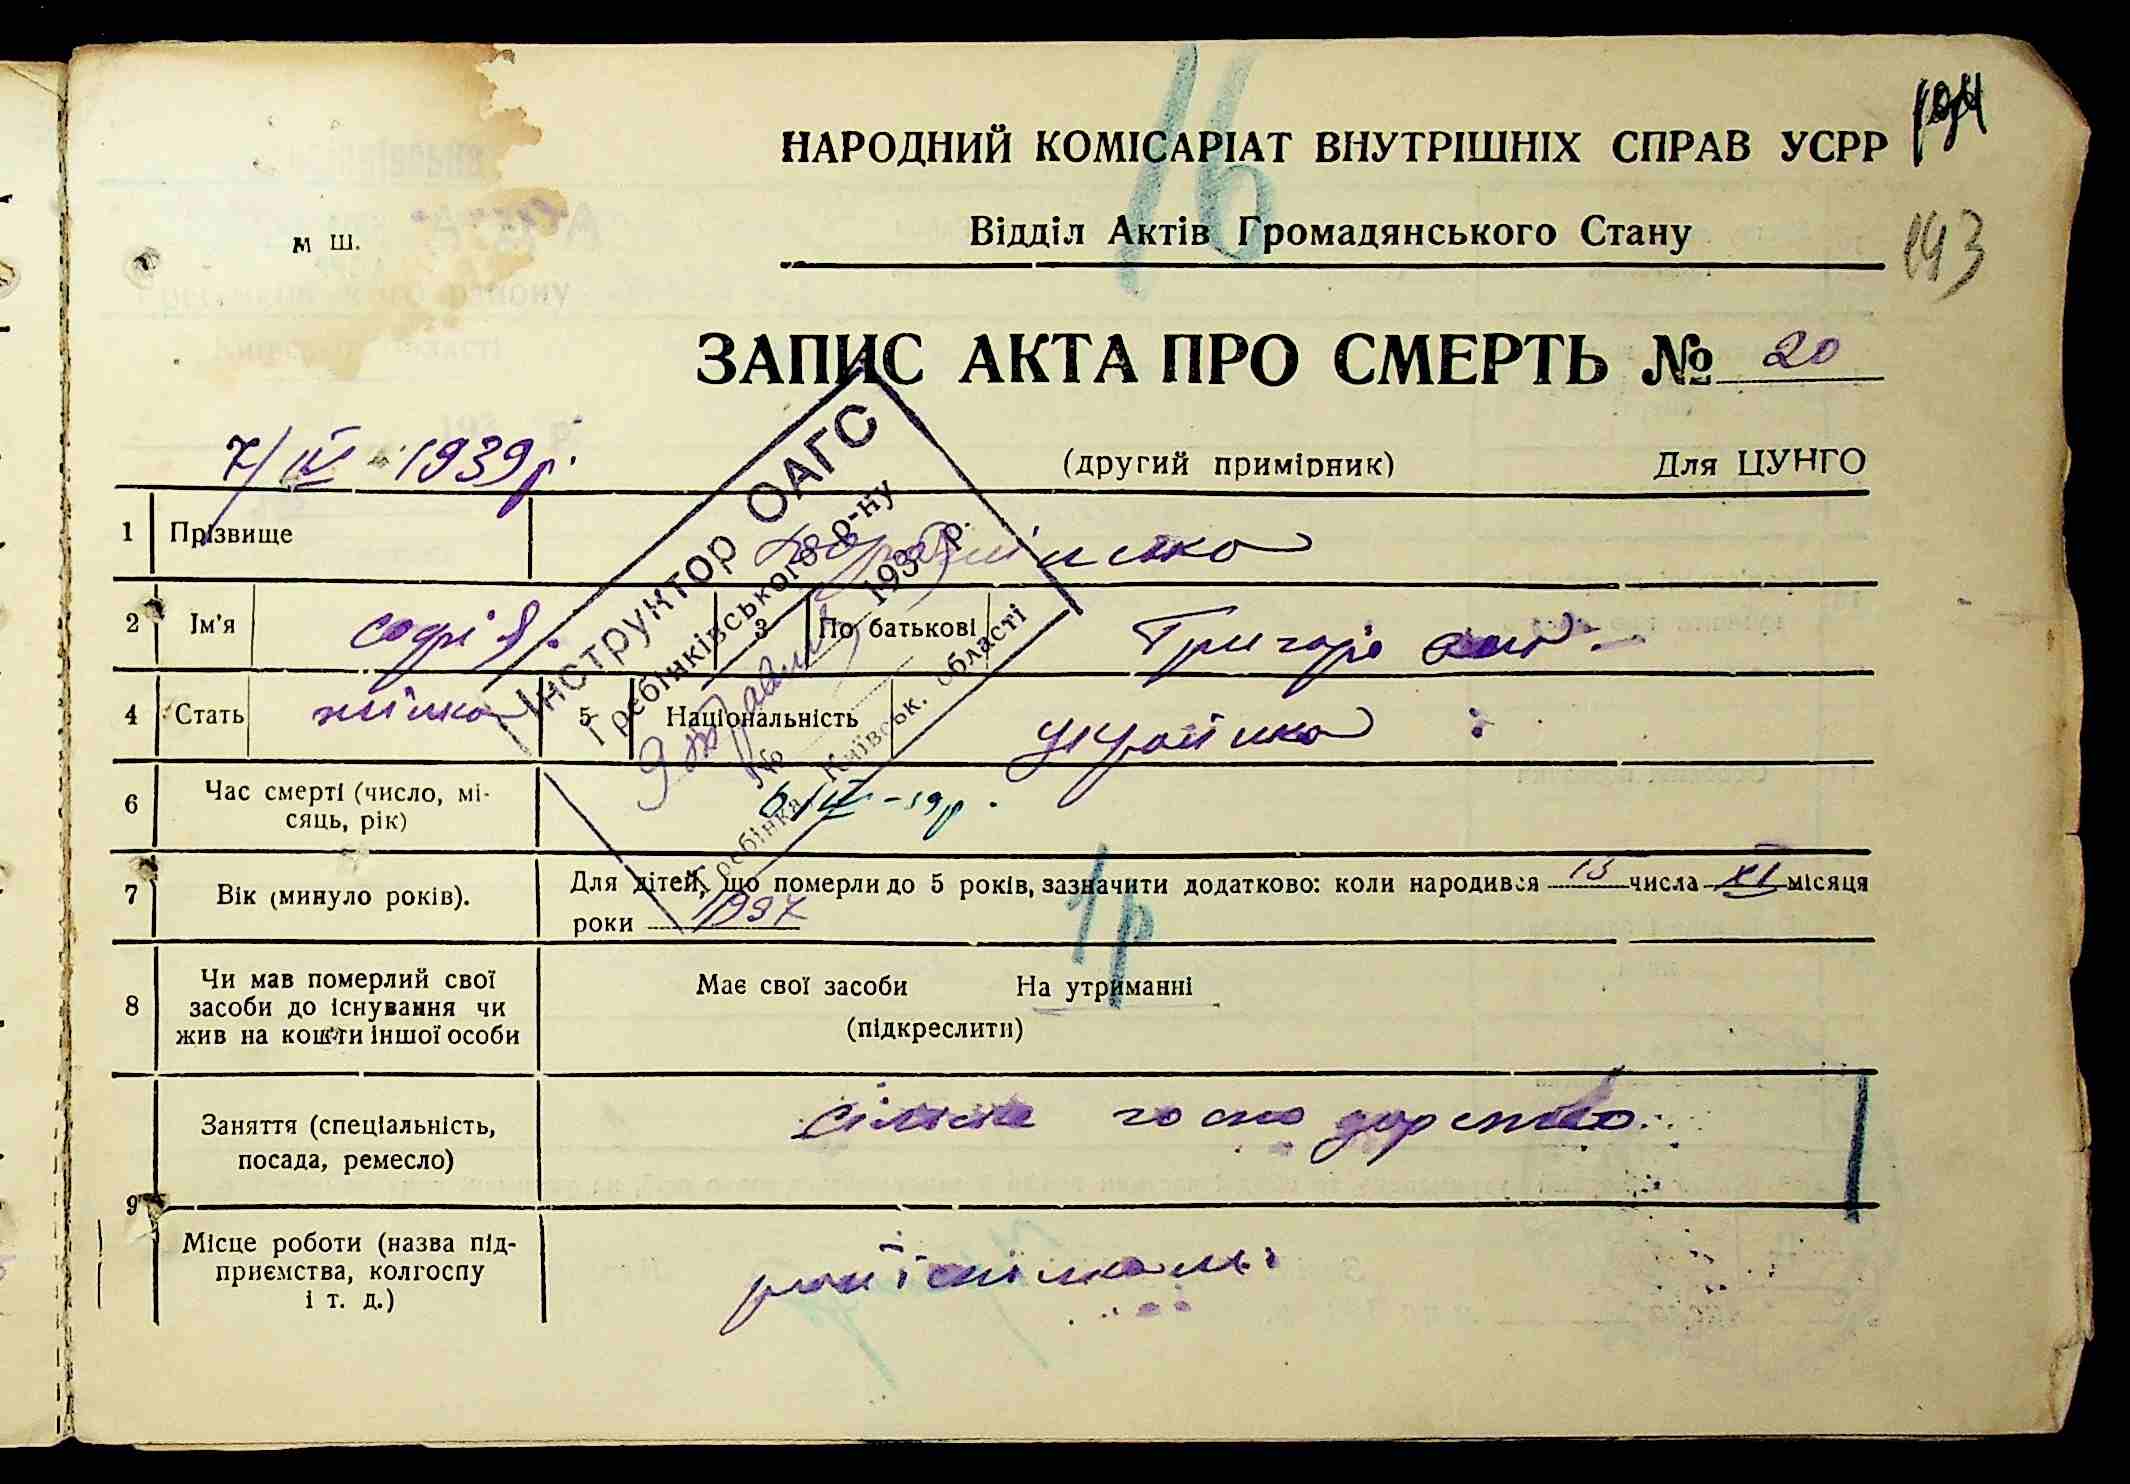 16
194
193
НАРОДНИЙ КОМІСАРІАТ ВНУТРІШНІХ СПРАВ УСРР
м ш.
Відділ Актів Громадянського Стану
ЗАПИС АКТА ПРО СМЕРТЬ № 20
7/IV - 1939 р.
(другий примірник) Для ЦУНГО
Інструктор ОАГС
Гребінківського р-ну
193 р.
№
Гребінка Київськ. області
1 Прізвище
2 Ім'я Софія. 3 По батькові Григорівна
4 Стать жінка 5 Національність українка
6 Час смерті (число, мі-
сяць, рік)
6/IV - 39 р.
7 Вік (минуло років). Для дітей, що померли до 5 років, зазначити додатково: коли народився 13 числа XI місяця
роки 1937
1 р
8 Чи мав померлий свої
засоби до існування чи
жив на кошти іншої особи
Має свої засоби На утриманні
(підкреслити)
9 Заняття (спеціальність,
посада, ремесло)
сільське господарство
Місце роботи (назва під-
приємства, колгоспу
і т. д.)